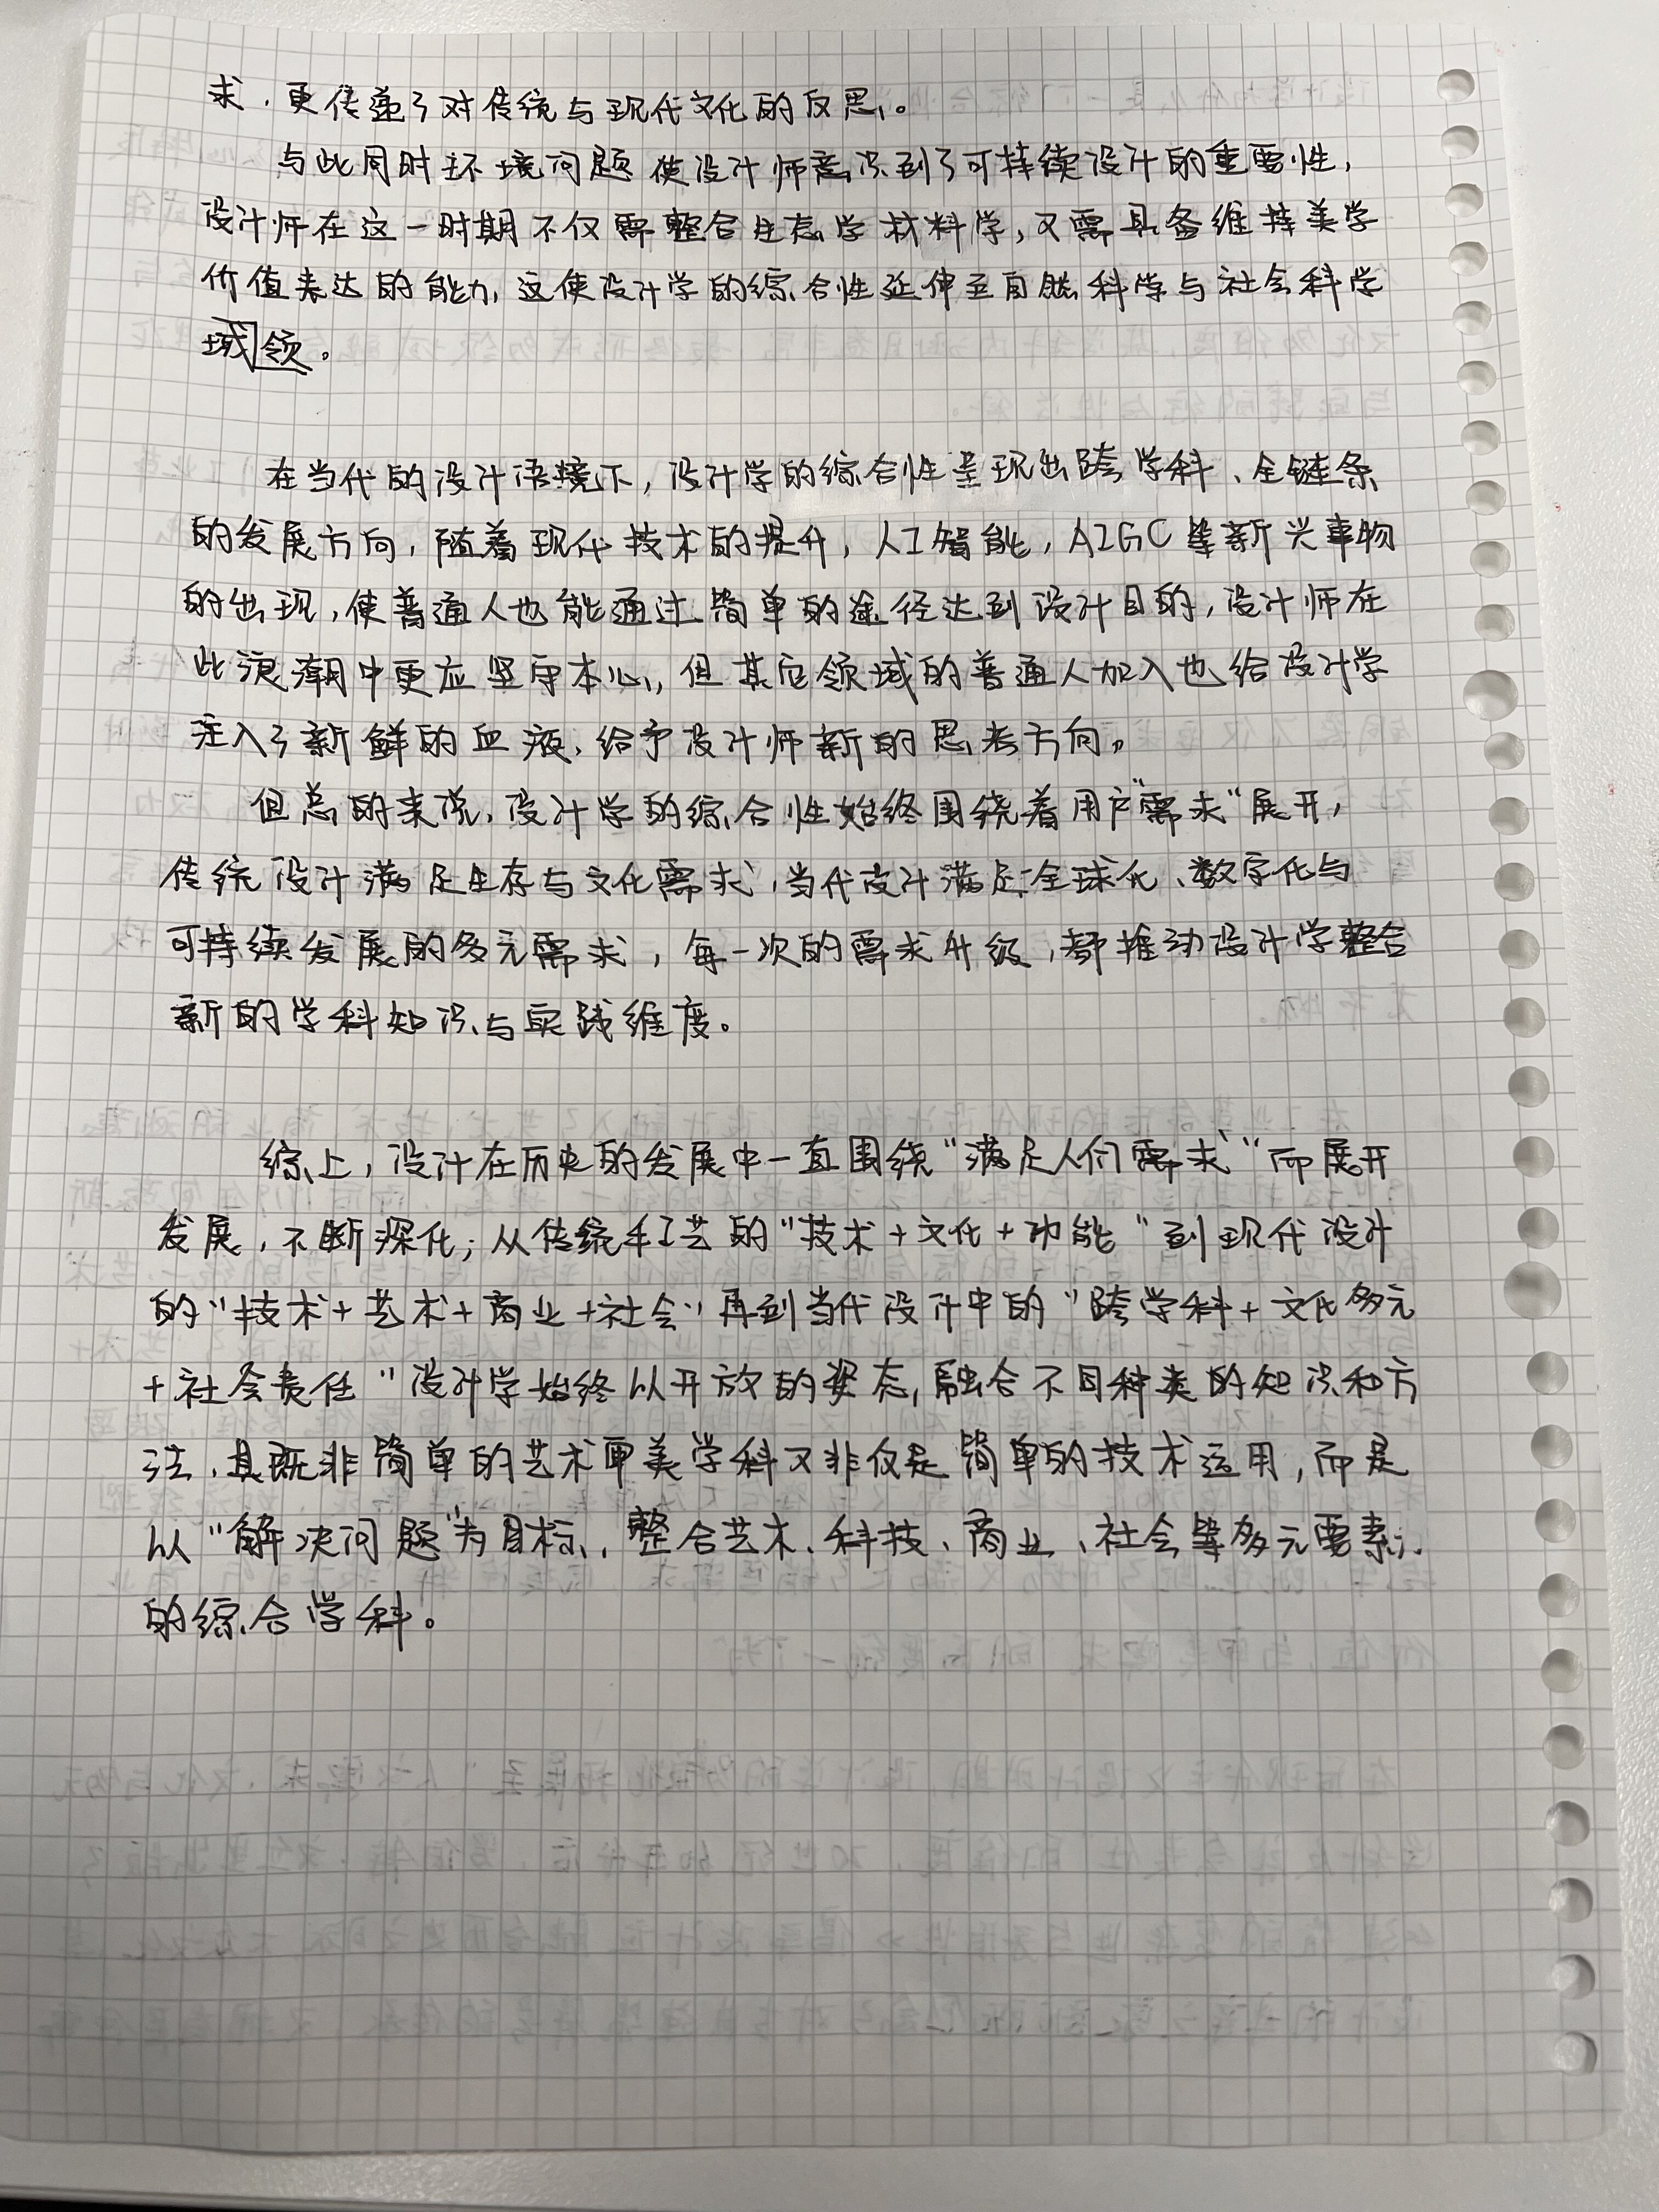 求，更传递了对传统与现代文化的反思。
与此同时环境问题使设计师意识到了可持续设计的重要性，
设计师在这一时期不仅需整合生态学材料学，又需具备维持美学
价值表达的能力，这使设计学的综合性延伸至自然科学与社会科学
域领。
在当代的设计语境下，设计学的综合性呈现出跨学科、全链条
的发展方向，随着现代技术的提升，人工智能，AIGC等新兴事物
的出现，使普通人也能通过简单的途径达到设计目的，设计师在
此浪潮中更应坚守本心，但其它领域的普通人加入也给设计学
注入了新鲜的血液，给予设计师新的思考方向。
但总的来说，设计学的综合性始终围绕着用户“需求“展开，
传统设计满足生存与文化需求，当代设计满足全球化、数字化与
可持续发展的多元需求，每一次的需求升级，都推动设计学整合
新的学科知识与实践维度。
综上，设计在历史的发展中一直围绕“满足人们需求“而展开
发展，不断深化；从传统手工艺的“技术+文化+功能“到现代设计
的“技术+艺术+商业+社会“再到当代设计中的“跨学科+文化多元
+社会责任“设计学始终以开放的姿态，融合不同种类的知识和方
法，其既非简单的艺术审美学科又非仅是简单的技术运用，而是
以“解决问题“为目标，整合艺术、科技、商业、社会等多元要素
的综合学科。